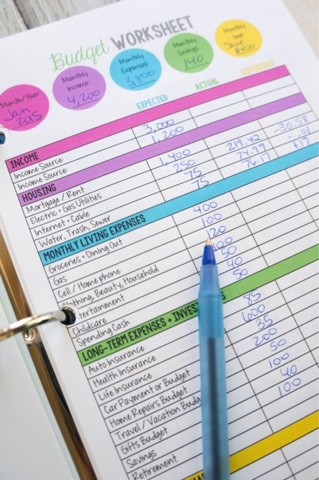 Budget WORKSHEET
Month/Year Jan 2015
Monthly Income 4,200
Monthly Expenses 3,800
Monthly Savings 140
$400
EXPECTED ACTUAL DIFFERENCE
INCOME
Income Source: 3,000
Income Source: 1,200
HOUSING
Mortgage / Rent 1,400
Electric + Gas Utilities 250 219.42 -30.58
Internet + Cable 75
Water, Trash, Sewer 75
MONTHLY LIVING EXPENSES
Groceries + Dining Out 400
Gas 100
Cell / Home phone 120
Clothing, Beauty, Household
Entertainment
Childcare
Spending Cash 50
LONG-TERM EXPENSES +
Auto Insurance 85
Health Insurance 600
Life Insurance 35
Car Payment or Budget 200
Home Repairs Budget 50
Travel / Vacation Budget 100
Gifts Budget 40
Savings 100
Retirement